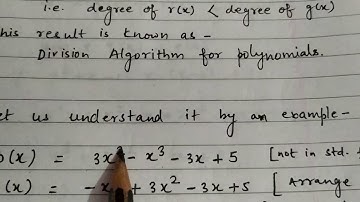 i.e. degree of r(x) < degree of g(x)
his result is known as -
Division Algorithm for polynomials.
et us understand it by an example -
(x) = 3x² - x³ - 3x + 5 [not in std.
(x) = -x + 3x² - 3x + 5 [Arrange